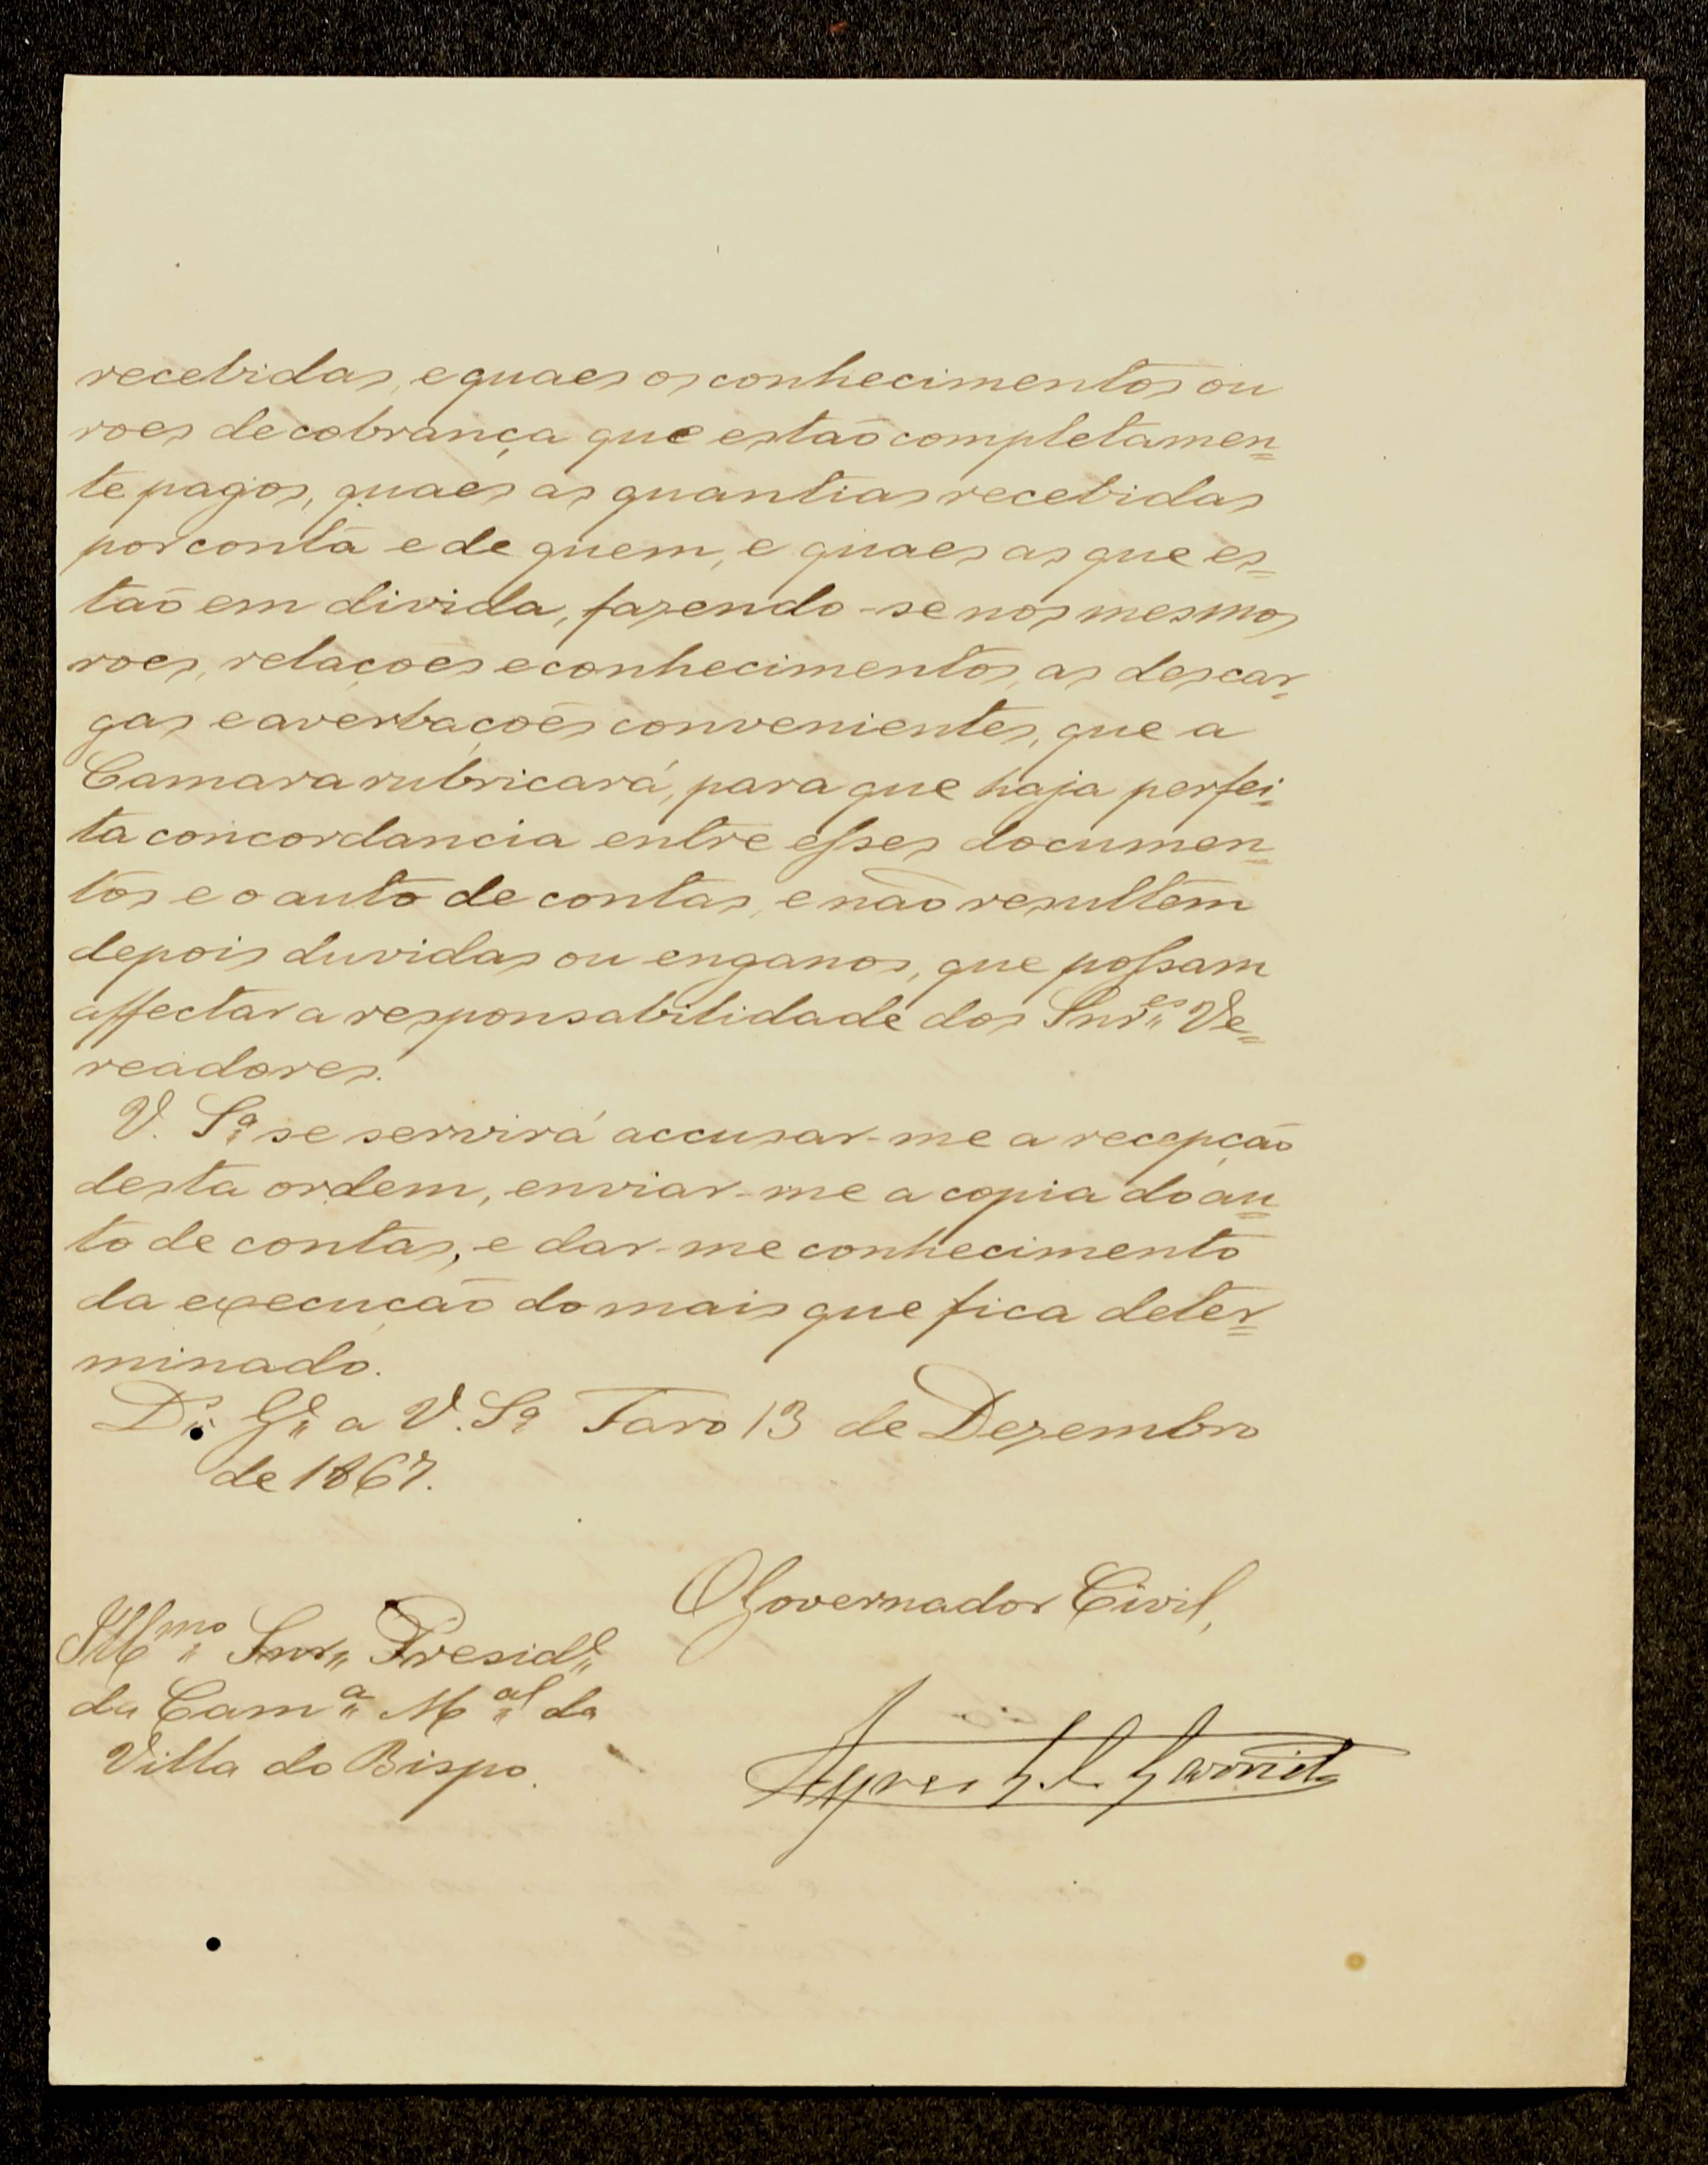 recebidas, e quaes os conhecimentos ou
roes de cobrança que estão completamen=
te pagos, quaes as quantias recebidas
por conta e de quem, e quaes as que es=
tão em divida, fazendo-se nos mesmos
roes, relações e conhecimentos, as descar=
gas e averbações convenientes, que a
Camara rubricará, para que haja perfei=
ta concordancia entre esses documen=
tos e o auto de contas, e não resultem
depois duvidas ou enganos, que possam
affectar a responsabilidade dos Snr.es Ve=
readores.
V. S.ª se servirá accusar-me a recepção
desta ordem, enviar-me a copia do au=
to de contas, e dar-me conhecimento
da execução do mais que fica deter=
minado.
D.s G.e a V. S.ª Faro 13 de Dezembro
de 1867.
O Governador Civil,
Ill.mo Snr. Presid.e
da Cam.ª M.al da
Villa do Bispo.